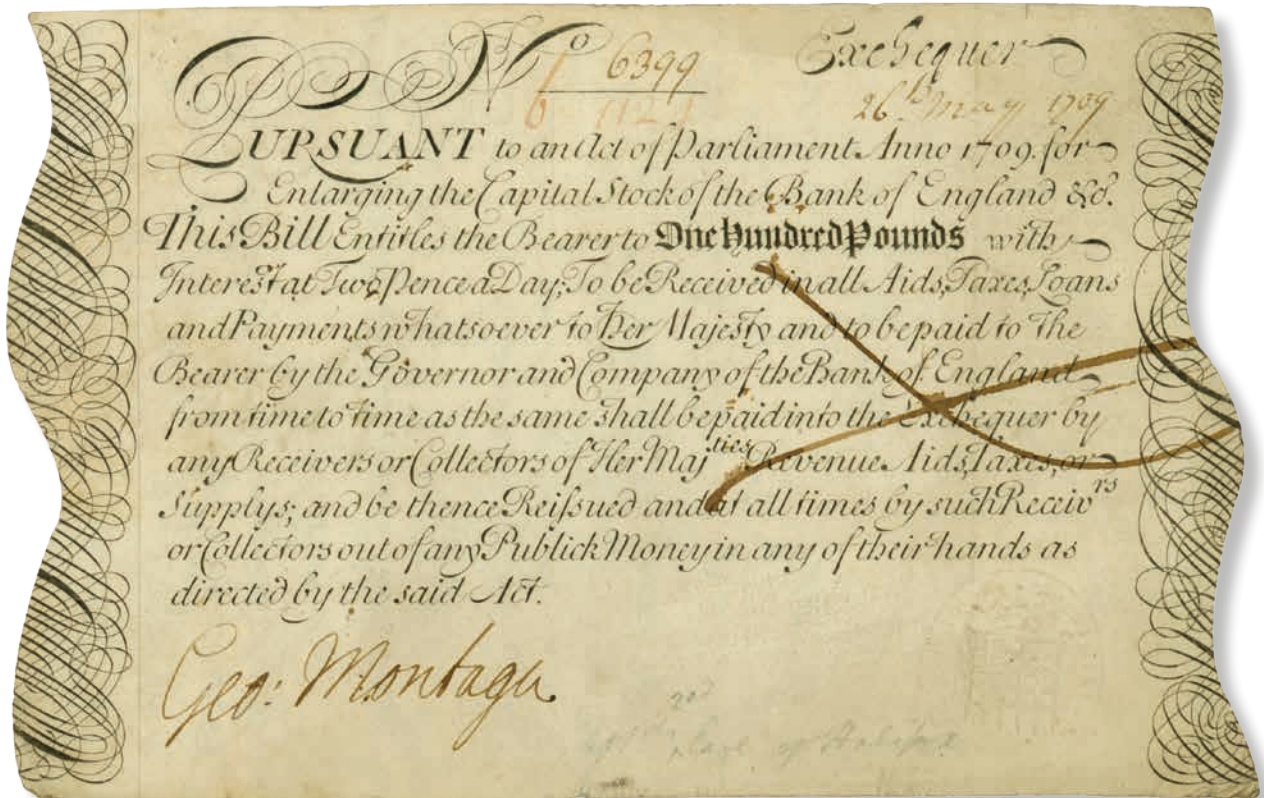 No 6399 Exchequer
26th May 1709
PURSUANT to an Act of Parliament Anno 1709. for
Enlarging the Capital Stock of the Bank of England &c.
This Bill Entitles the Bearer to One Hundred Pounds with
Interest at Two Pence a Day; To be Received in all Aids, Taxes, Loans
and Payments whatsoever to Her Majesty and to be paid to the
Bearer by the Governor and Company of the Bank of England
from time to time as the same shall be paid into the Exchequer by
any Receivers or Collectors of Her Majties Revenue Aids, Taxes, or
Supplys; and be thence Reissued and at all times by such Receivrs
or Collectors out of any Publick Money in any of their hands as
directed by the said Act.
Geo: Montagu